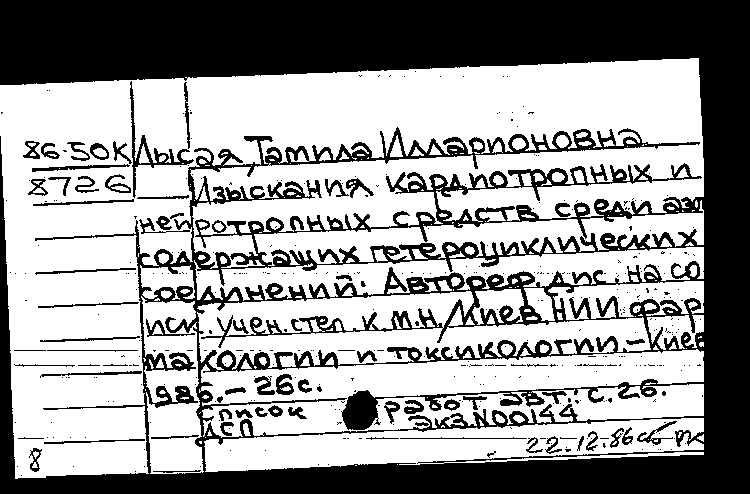 86-50К Лысая, Тамила Илларионовна
8726 Изыскания кардиотропных и
нейротропных средств среди азот
содержащих гетероциклических
соединений: Автореф. дис. на со
иск. учен. степ. к.м.н./Киев. НИИ фар-
макологии и токсикологии.-Киев
1986.-26с.
Список работ авт.: с.26.
ДСП. Экз.N00144.
22.12.86
8